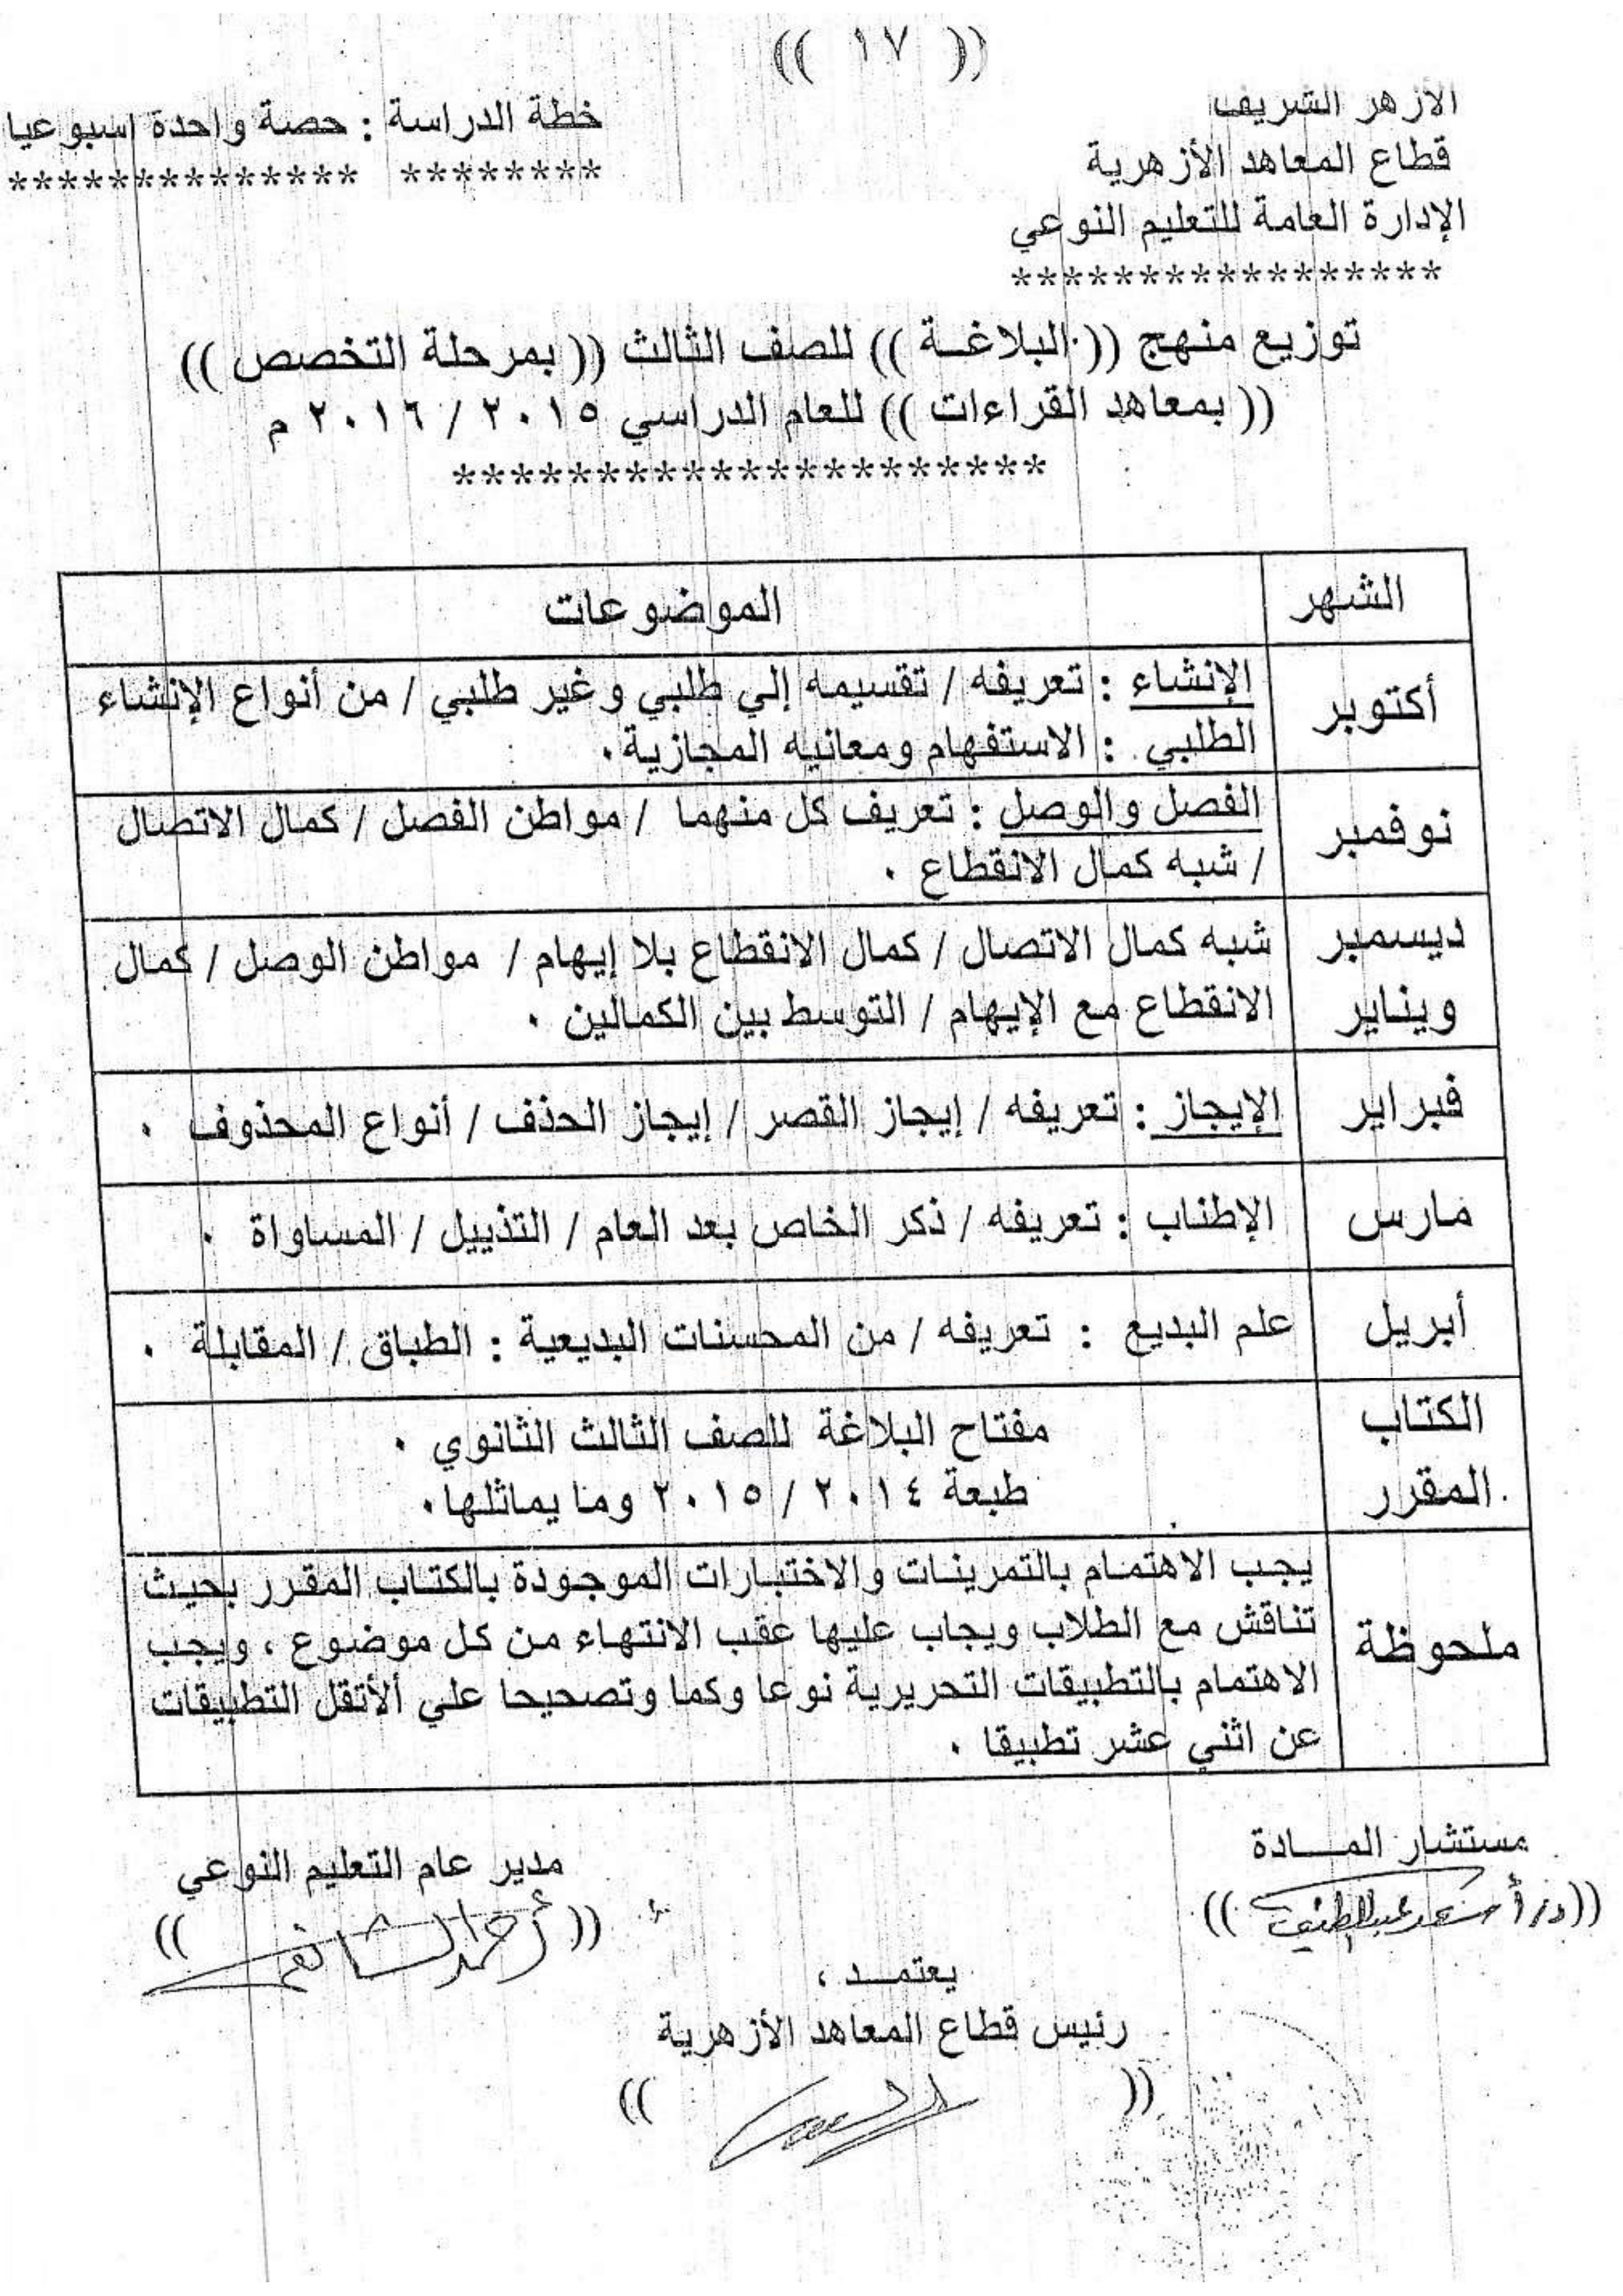 (( ١٧ ))
الأزهر الشريف
خطة الدراسة : حصة واحدة اسبوعيا
قطاع المعاهد الأزهرية
******** **************
الإدارة العامة للتعليم النوعي
*****************
توزيع منهج (( البلاغـــة )) للصف الثالث (( بمرحلة التخصص ))
(( بمعاهد القراءات )) للعام الدراسي ٢٠١٥ / ٢٠١٦ م
*********************
الشهر
الموضوعات
أكتوبر
الإنشاء : تعريفه / تقسيمه إلي طلبي وغير طلبي / من أنواع الإنشاء
الطلبي : الاستفهام ومعانيه المجازية .
نوفمبر
الفصل والوصل : تعريف كل منهما / مواطن الفصل / كمال الاتصال
/ شبه كمال الانقطاع .
ديسمبر
ويناير
شبه كمال الاتصال / كمال الانقطاع بلا إيهام / مواطن الوصل / كمال
الانقطاع مع الإيهام / التوسط بين الكمالين .
فبراير
الإيجاز : تعريفه / إيجاز القصر / إيجاز الحذف / أنواع المحذوف .
مارس
الإطناب : تعريفه / ذكر الخاص بعد العام / التذييل / المساواة .
أبريل
علم البديع : تعريفه / من المحسنات البديعية : الطباق / المقابلة .
الكتاب
المقرر
مفتاح البلاغة للصف الثالث الثانوي .
طبعة ٢٠١٤ / ٢٠١٥ وما يماثلها .
ملحوظة
يجب الاهتمام بالتمرينات والاختبارات الموجودة بالكتاب المقرر بحيث
تناقش مع الطلاب ويجاب عليها عقب الانتهاء من كل موضوع ، ويجب
الاهتمام بالتطبيقات التحريرية نوعا وكما وتصحيحا علي ألاتقل التطبيقات
عن اثني عشر تطبيقا .
مستشار المــــادة
مدير عام التعليم النوعي
((أحمد الشافعي))
يعتمـــد ،
رئيس قطاع المعاهد الأزهرية
(( ))